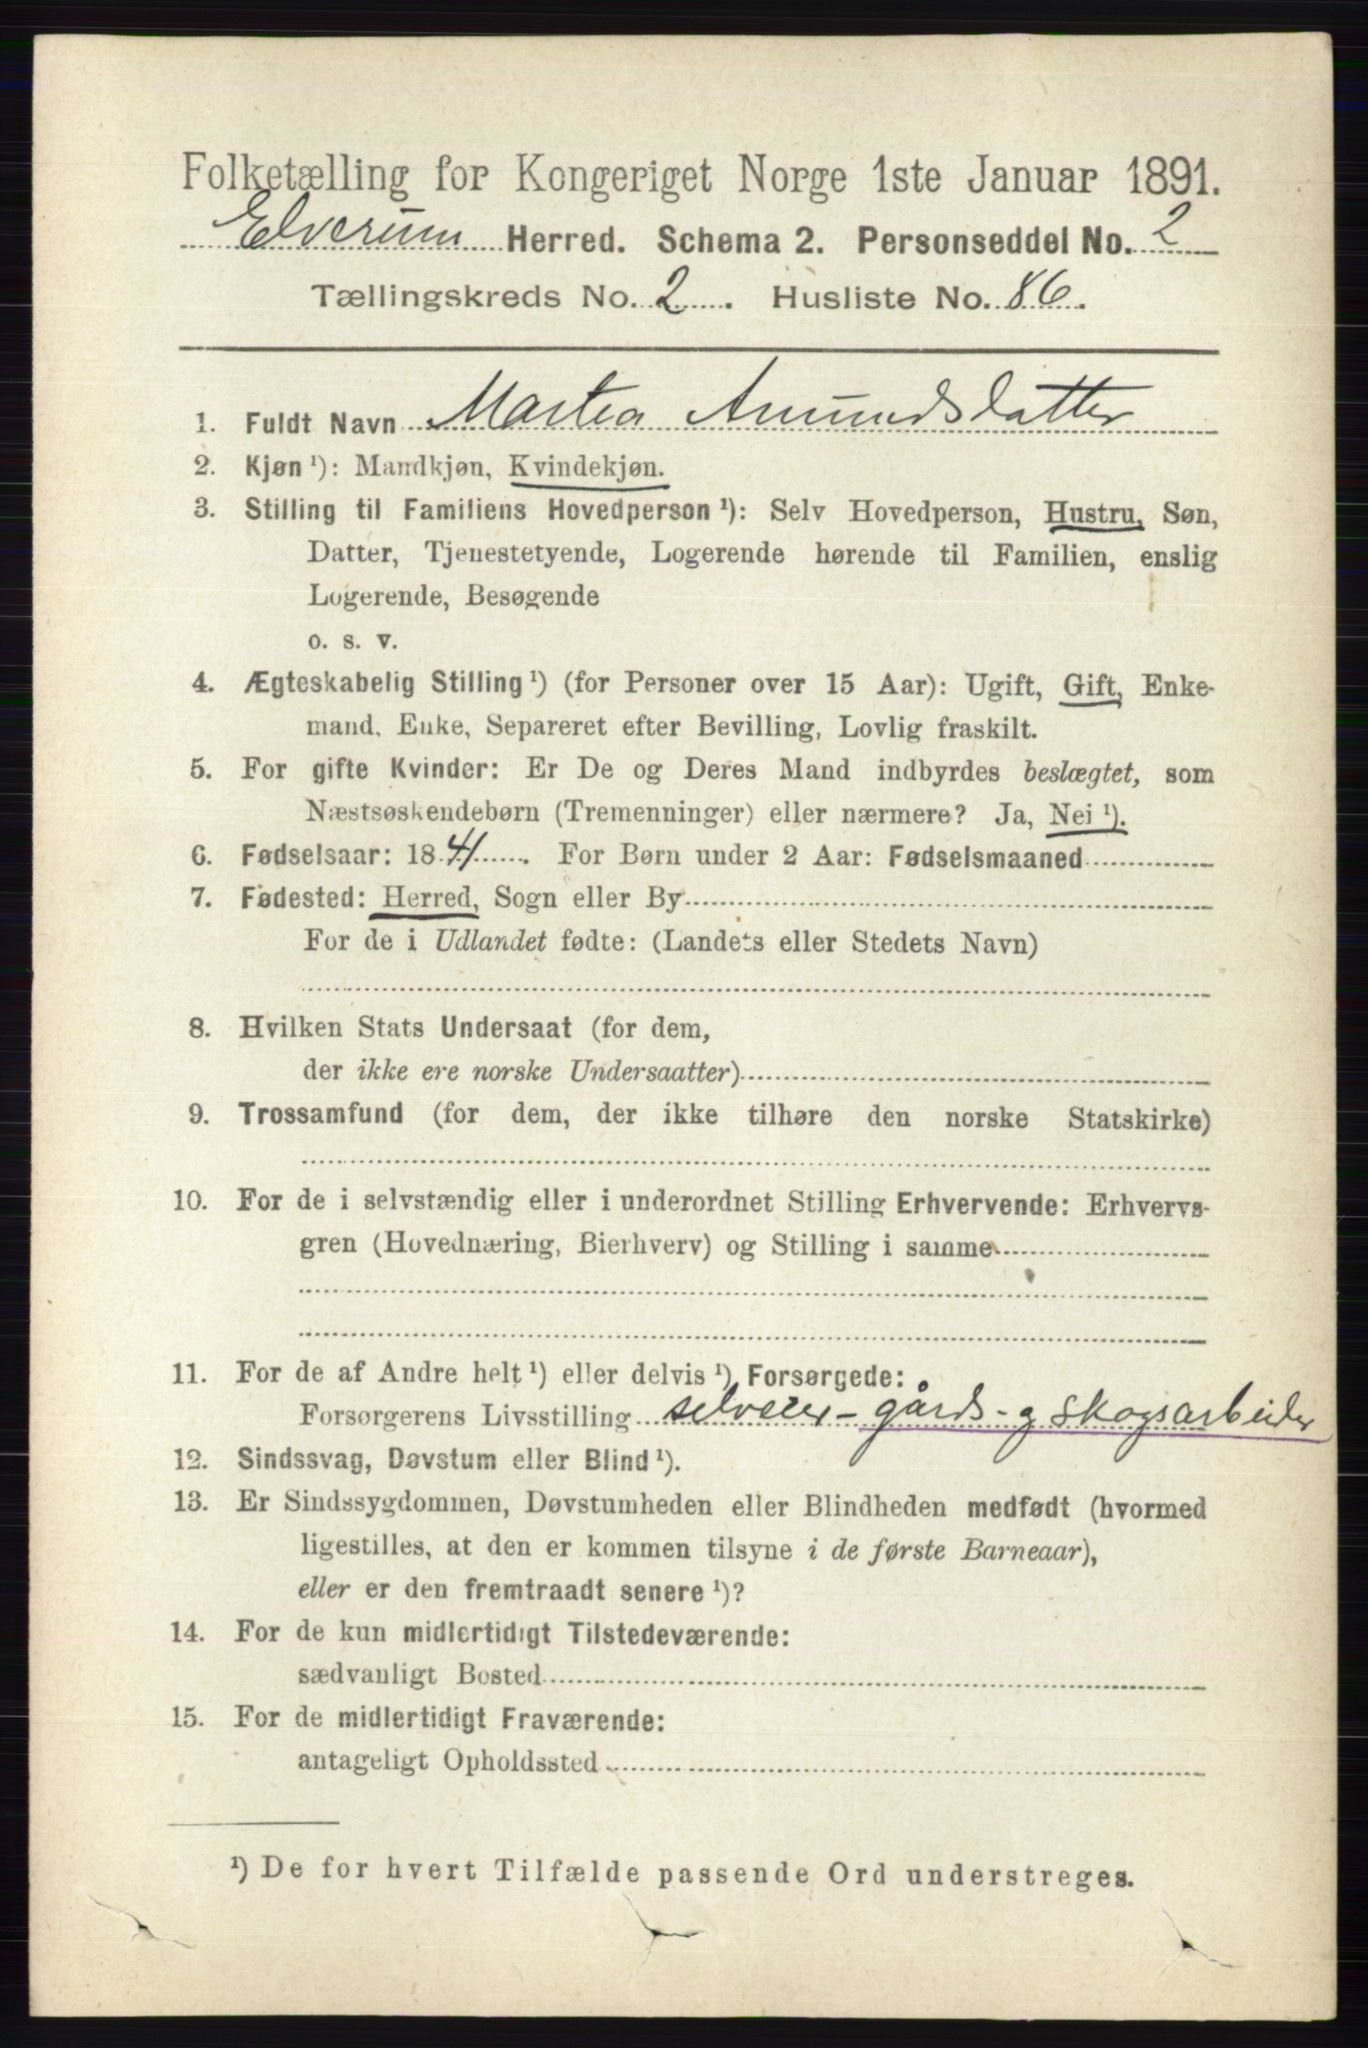 Folketælling for Kongeriget Norge 1ste Januar 1891.
Elverum Herred. Schema 2. Personseddel No. 2
Tællingskreds No. 2. Husliste No. 86.
1. Fuldt Navn Martea Amundsdatter
2. Kjøn ¹): Mandkjøn, Kvindekjøn.
3. Stilling til Familiens Hovedperson ¹): Selv Hovedperson, Hustru, Søn,
Datter, Tjenestetyende, Logerende hørende til Familien, enslig
Logerende, Besøgende
o. s. v.
4. Ægteskabelig Stilling ¹) (for Personer over 15 Aar): Ugift, Gift, Enke-
mand, Enke, Separeret efter Bevilling, Lovlig fraskilt.
5. For gifte Kvinder: Er De og Deres Mand indbyrdes beslægtet, som
Næstsøskendebørn (Tremenninger) eller nærmere? Ja, Nei ¹).
6. Fødselsaar: 1841. For Børn under 2 Aar: Fødselsmaaned
7. Fødested: Herred, Sogn eller By
For de i Udlandet fødte: (Landets eller Stedets Navn)
8. Hvilken Stats Undersaat (for dem,
der ikke ere norske Undersaatter)
9. Trossamfund (for dem, der ikke tilhøre den norske Statskirke)
10. For de i selvstændig eller i underordnet Stilling Erhvervende: Erhvervs-
gren (Hovednæring, Bierhverv) og Stilling i samme
11. For de af Andre helt ¹) eller delvis ¹) Forsørgede:
Forsørgerens Livsstilling selveier- gårds- og skogsarbeider
12. Sindssvag, Døvstum eller Blind ¹).
13. Er Sindssygdommen, Døvstumheden eller Blindheden medfødt (hvormed
ligestilles, at den er kommen tilsyne i de første Barneaar),
eller er den fremtraadt senere ¹)?
14. For de kun midlertidigt Tilstedeværende:
sædvanligt Bosted
15. For de midlertidigt Fraværende:
antageligt Opholdssted
¹) De for hvert Tilfælde passende Ord understreges.